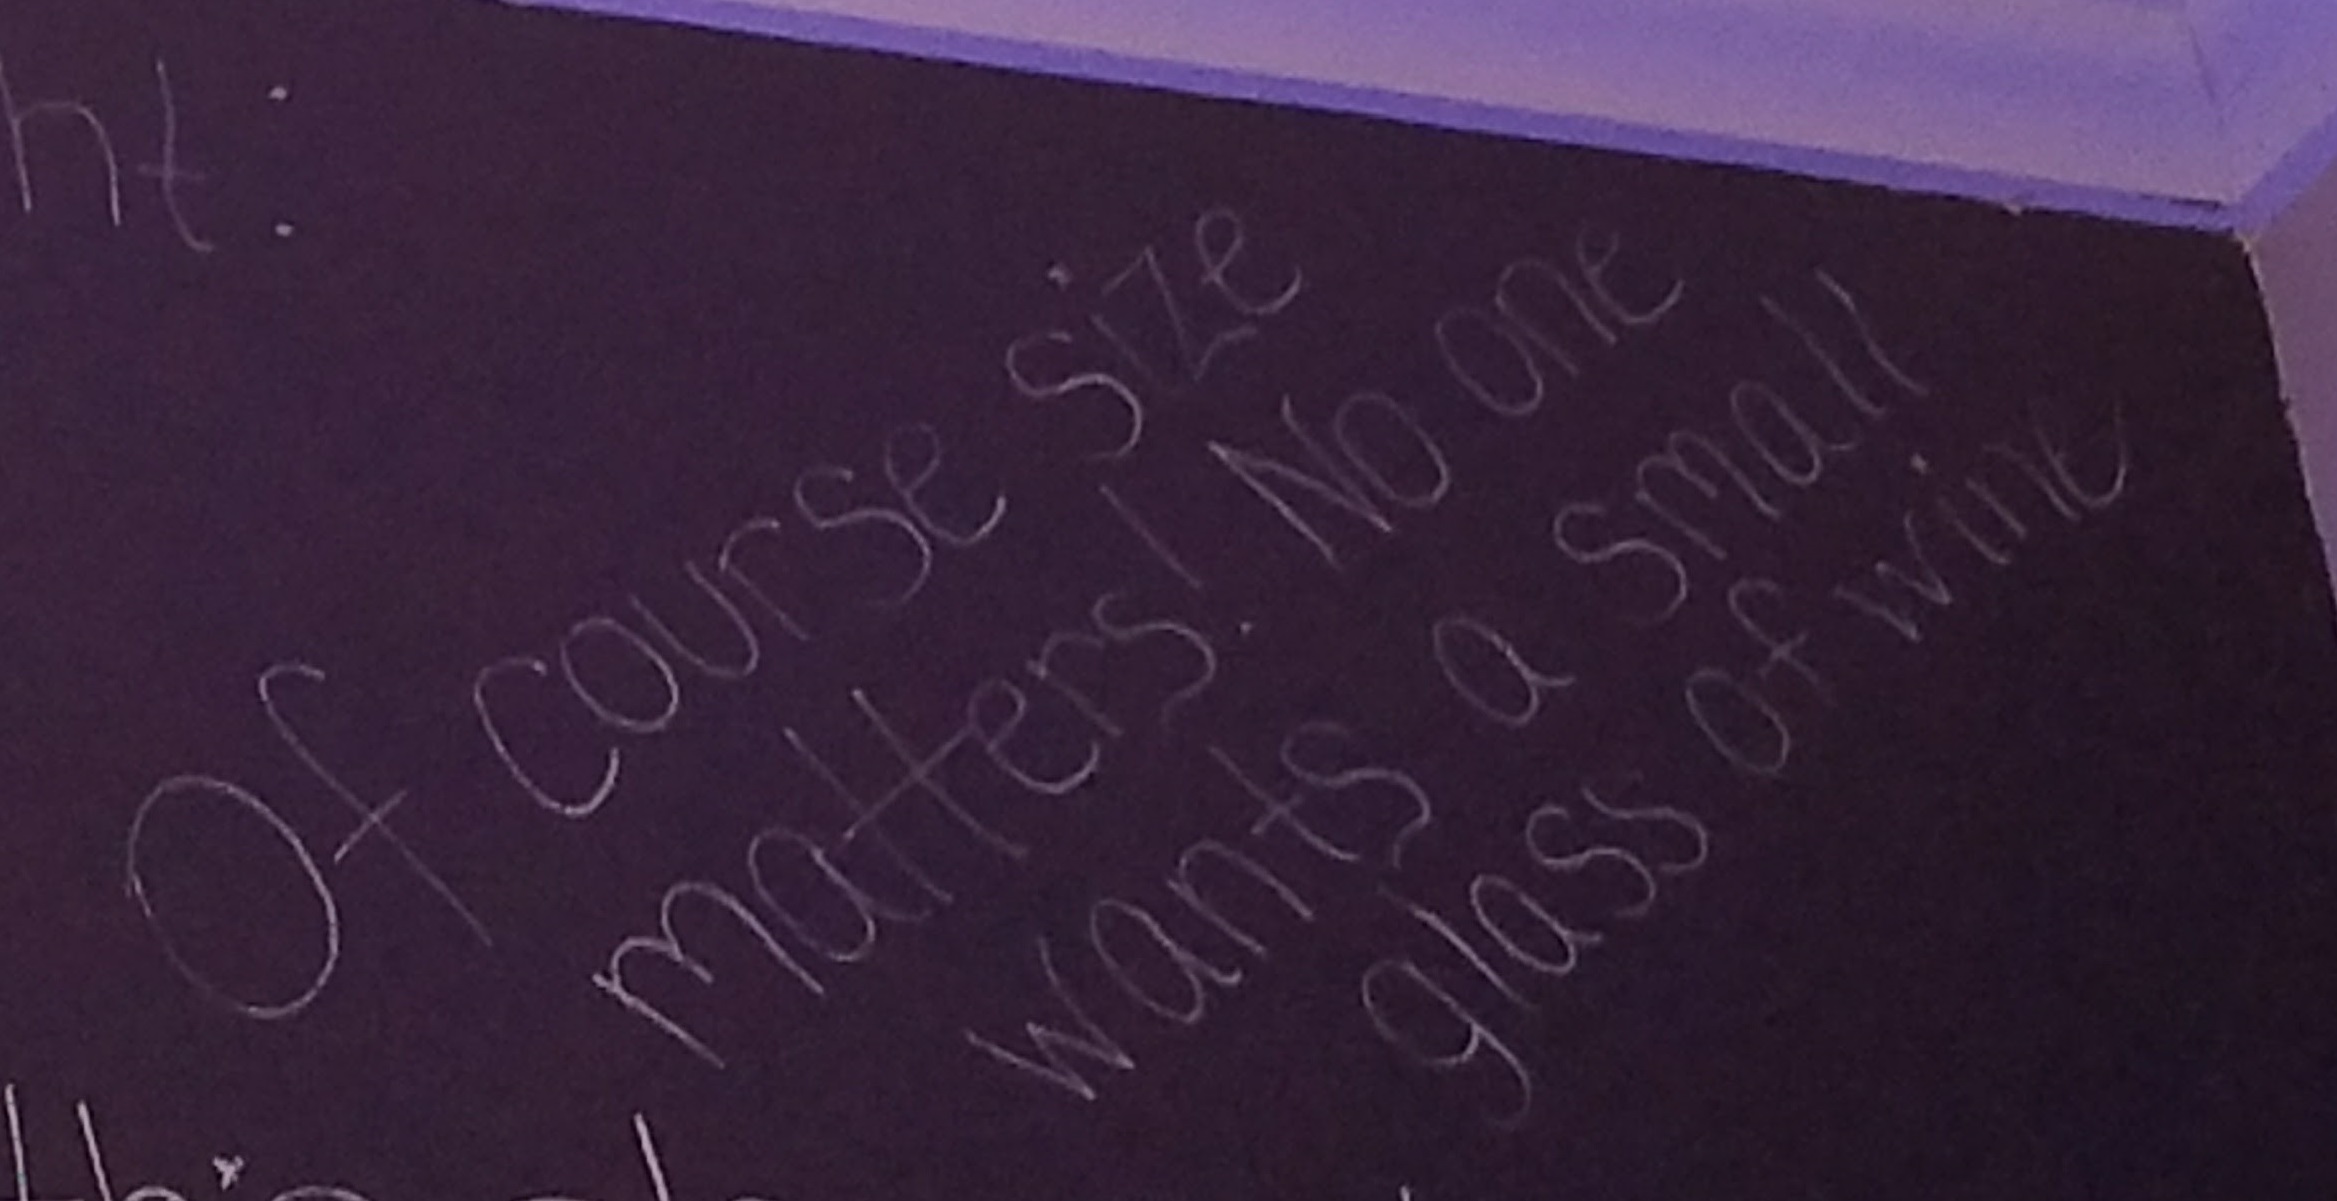 ht:
Of course size
matters! No one
wants a small
glass of wine